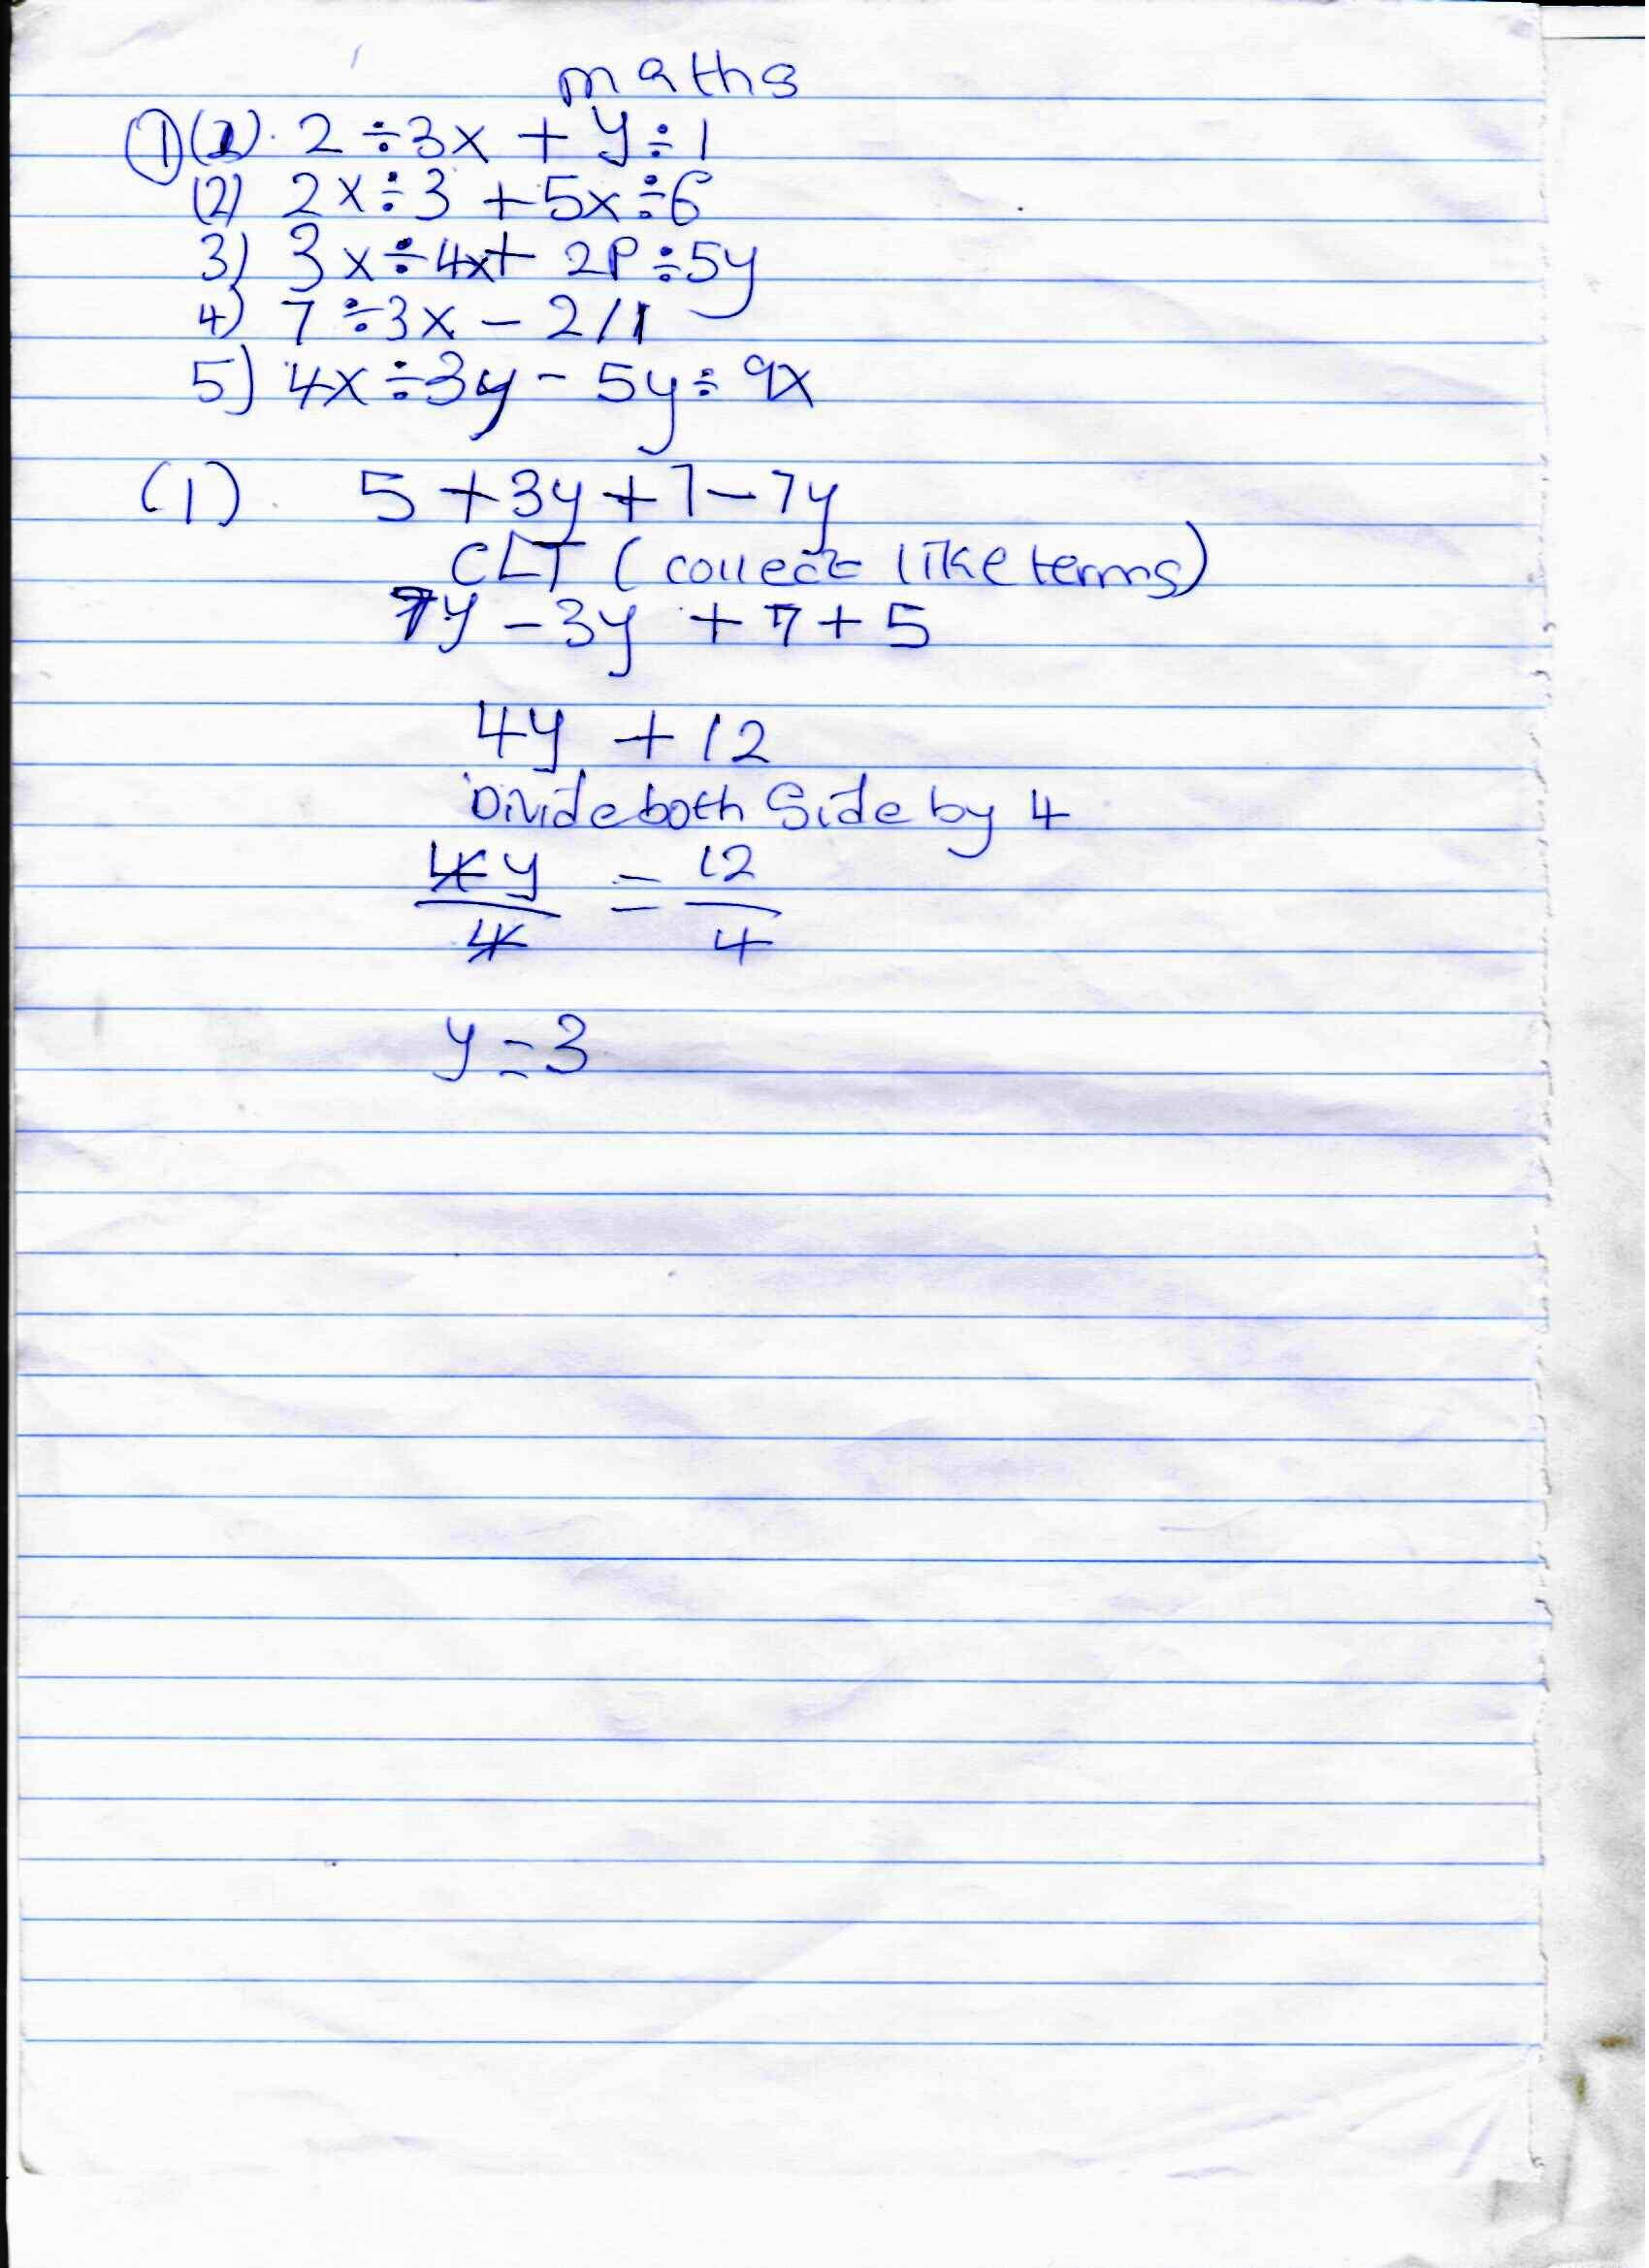 maths
① (1). 2 ÷ 3x + y ÷ 1
(2) 2x ÷ 3 + 5x ÷ 6
3) 3x ÷ 4x + 2P ÷ 5y
4) 7 ÷ 3x - 2/1
5) 4x ÷ 3y - 5y ÷ 9x
(1). 5 + 3y + 7 - 7y
CLT (collect like terms)
7y - 3y + 7 + 5
4y + 12
Divide both Side by 4
4y = 12
4 4
y = 3